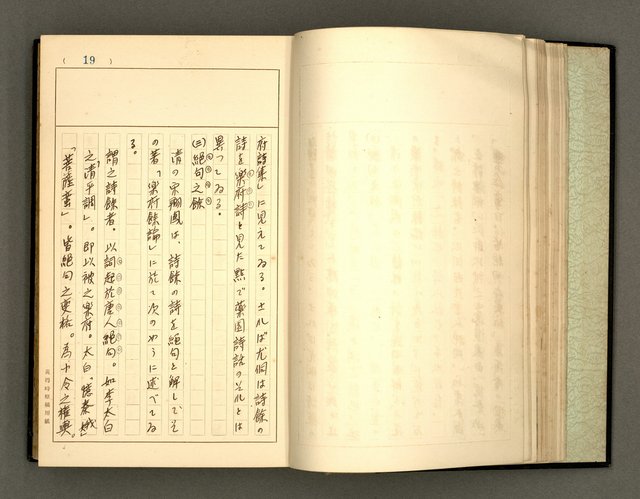 ( 19 )
府詩集」に見えてゐる。さればち尤侗は詩餘の
詩を樂府詩と見た點で藥園詩話のそれとは
異つてゐる。
(三)絕句之餘
清の宋翔鳳は、詩餘の詩を絕句と解してそ
の著「樂府餘論」に於て次のやうに述べてゐ
る。
謂之詩餘者。以詞起於唐人絕句。如李太白
之「清平調」。即以被之樂府。太白「憶秦娥」
「菩薩蠻」。皆絕句之變格。為小令之權輿。